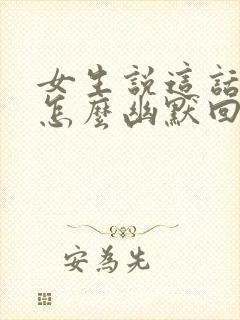 女生說這話
怎麼幽默回
安為先